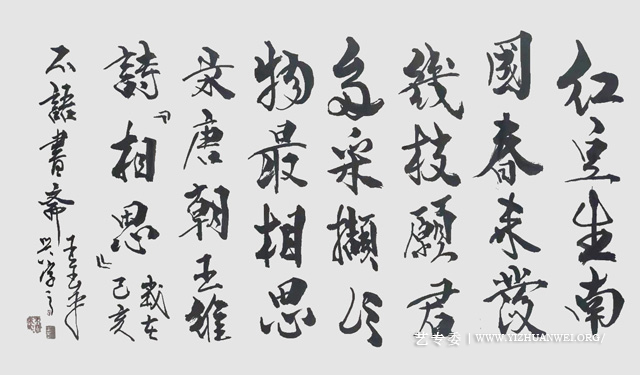 红豆生南
國春来發
幾枝願君
多采擷此
物最相思
录唐朝王維
詩『相思』歲在己亥
不語書齋
艺专委 | WWW.YIZHUANWEI.ORG/